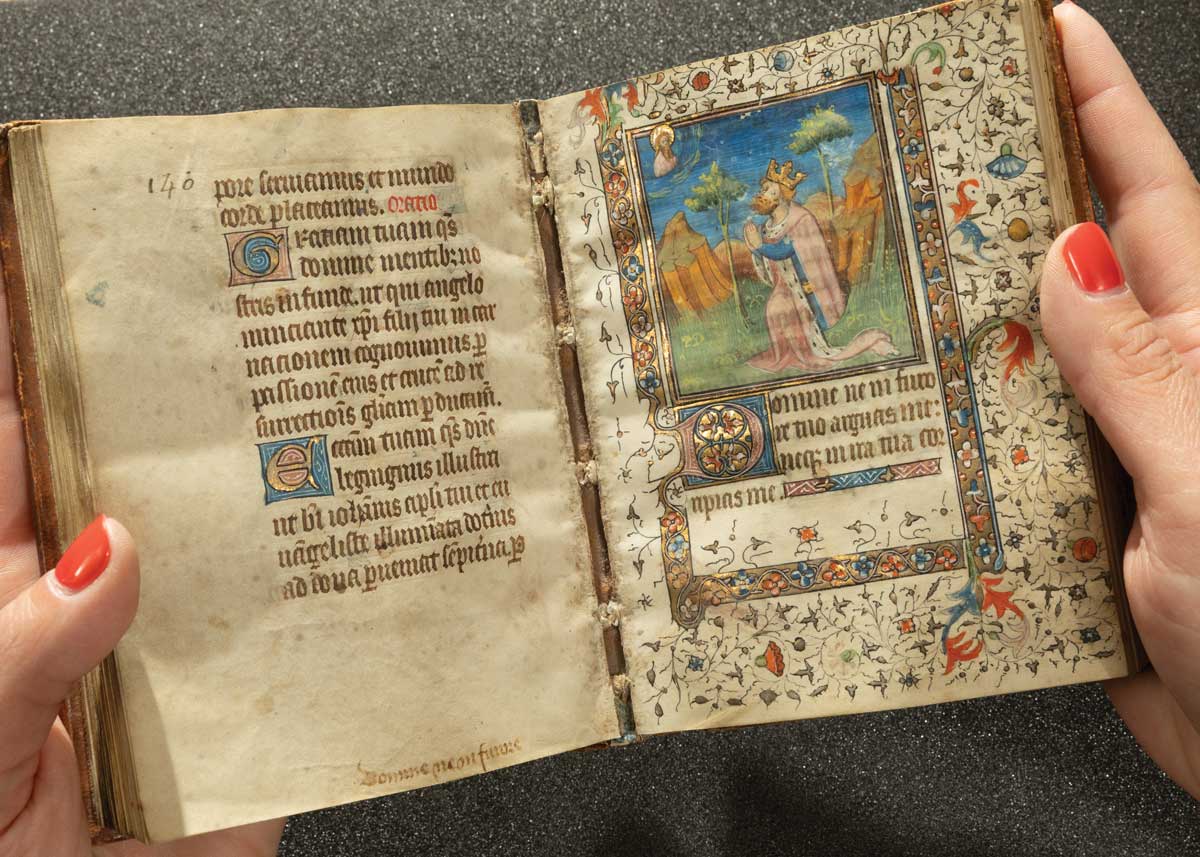 140
pore seruiamus et mundo
corde placeamus. Oratio
Gratiam tuam qs̄
domine mentib; no
stris infunde. ut qui angelo
nunciante xp̄i filij tui incar
nacionem cognouimus ꝑ
passionē eius et crucē ad re
surrectiōis gl̄iam ꝑducam̄.
Ecc̄am tuam qs̄ dn̄e
benignus illustra
ut bī iohānis apl̄i tui et eu
uāgeliste illuminata doctⁱius
ad dona ꝑueniat sēpit̄na ꝑ
Domine ne in furore
Domine ne in furo
re tuo arguas me:
neqꝫ in ira tua cor
ripias me.